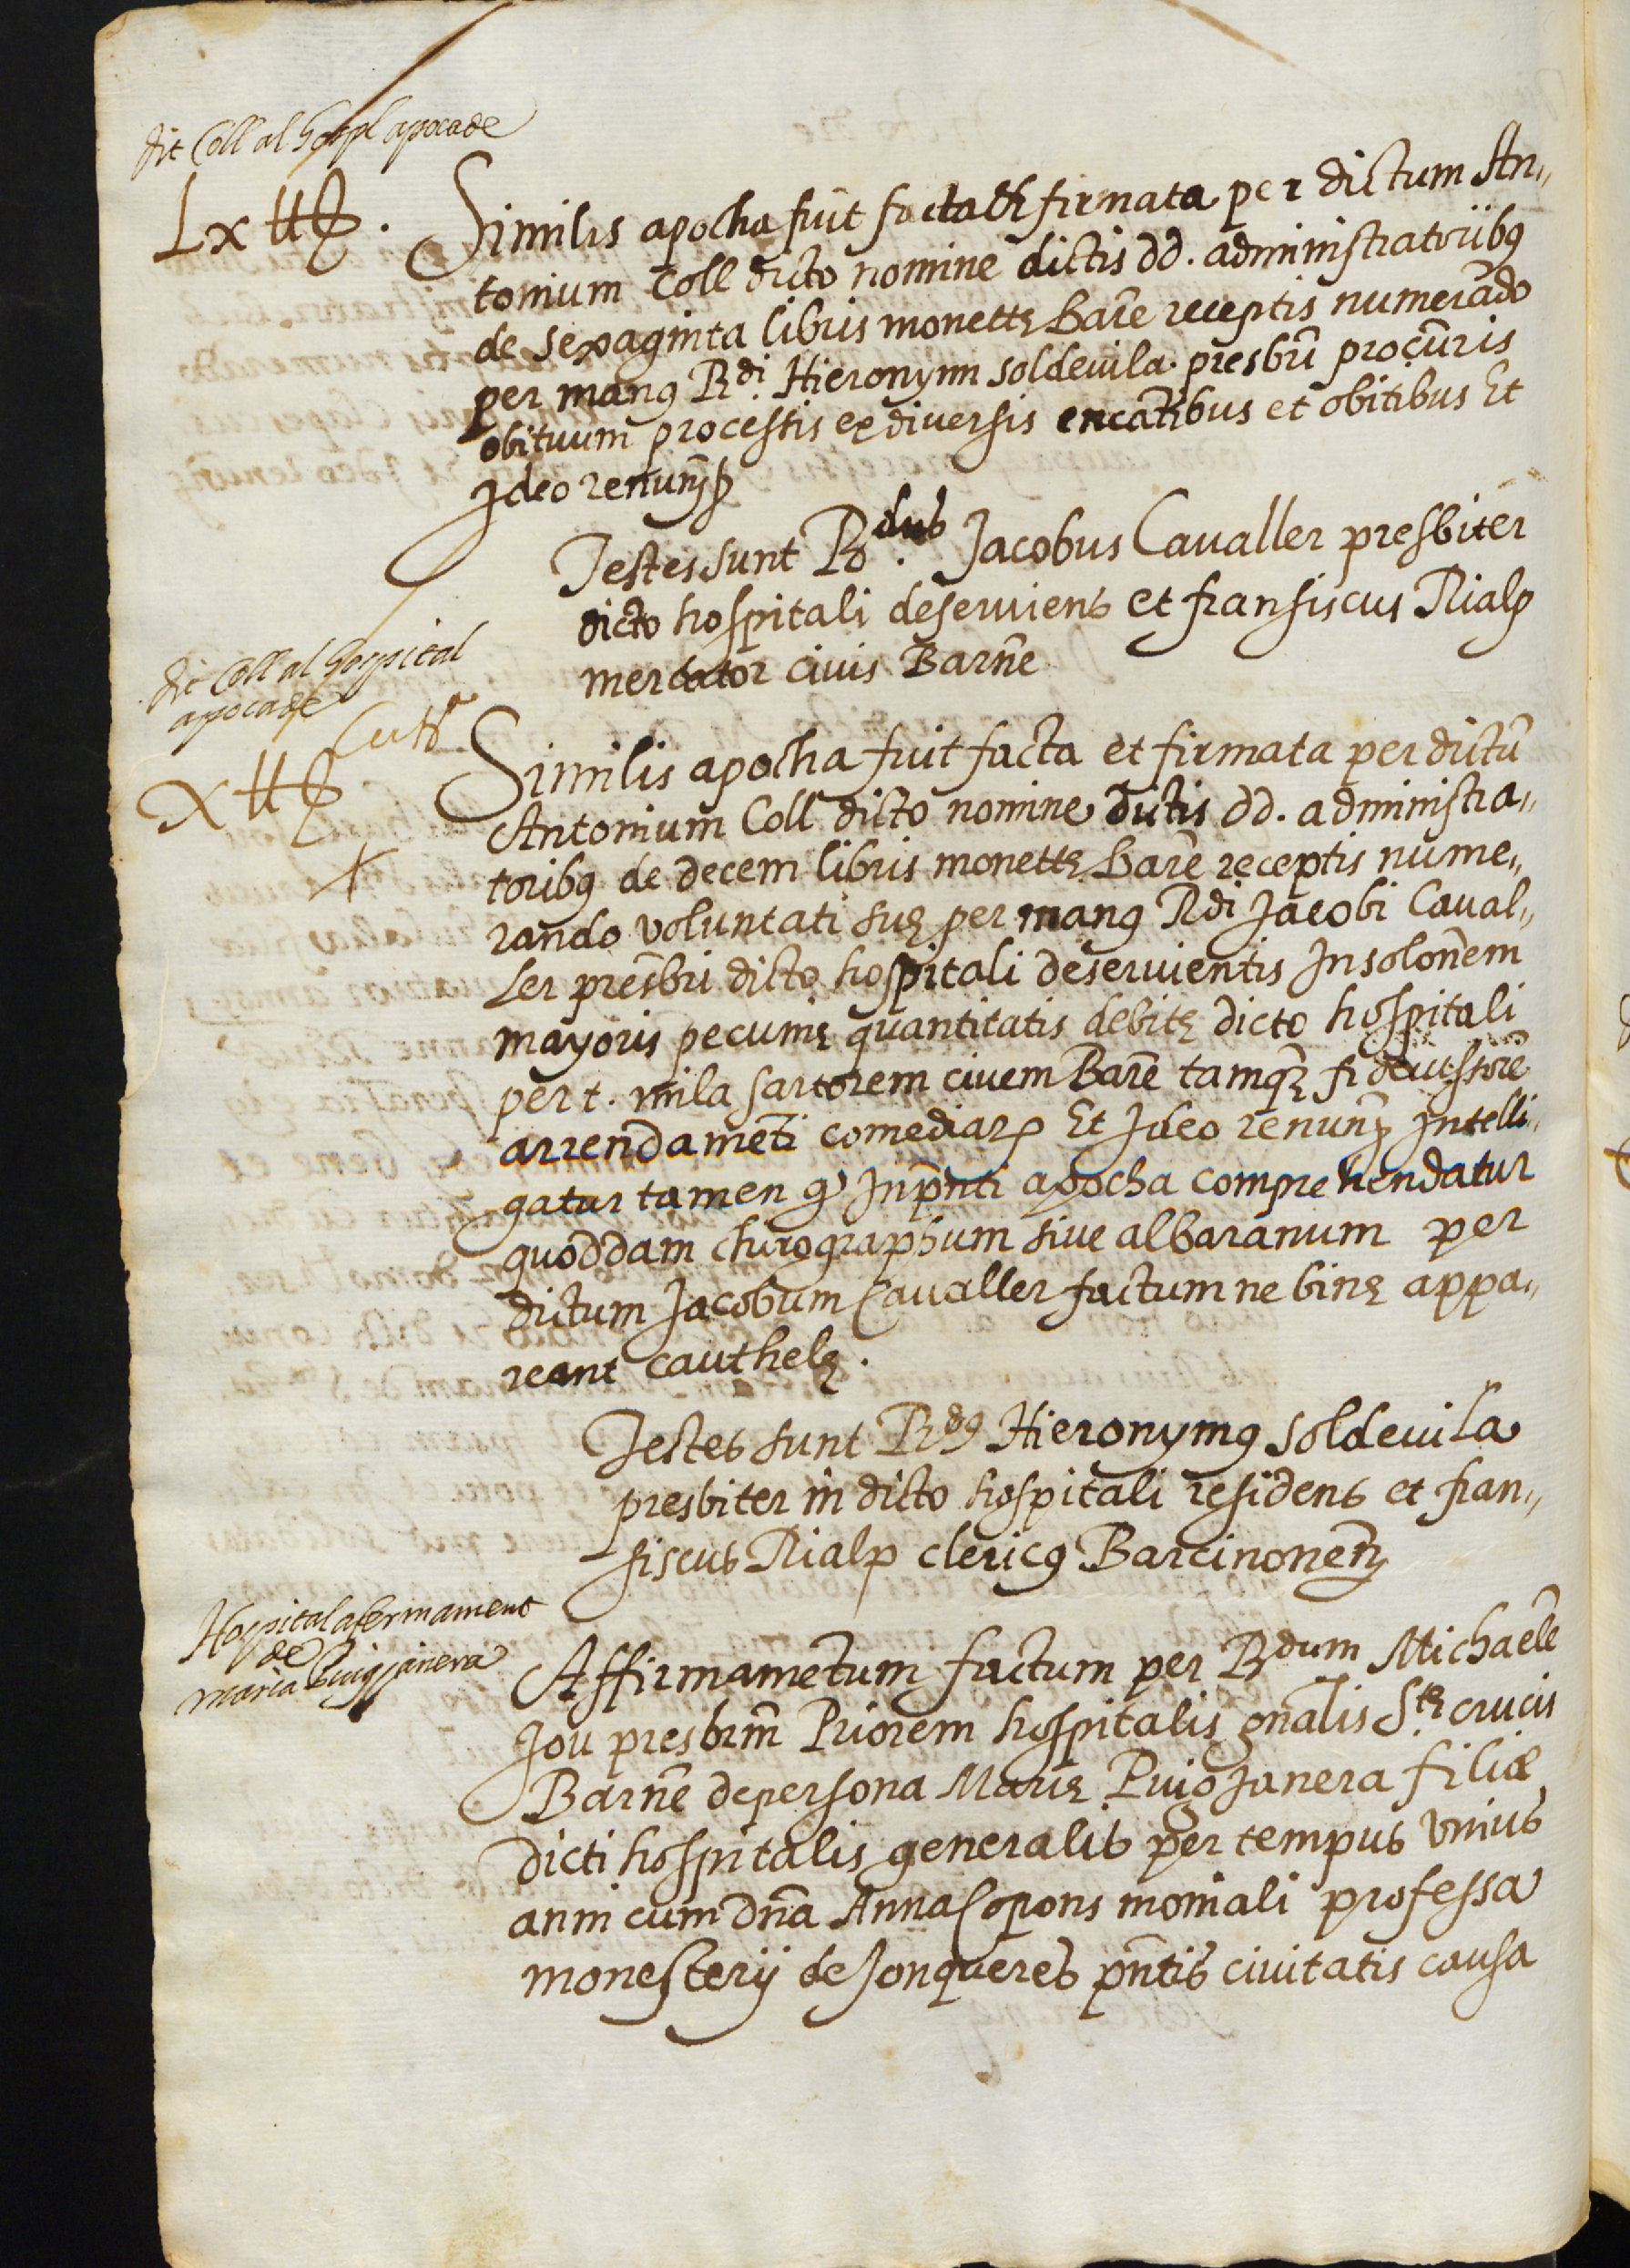 dit Coll al hospl apoca de
Lx ll. Similis apocha fuit facta et firmata per dictum An,,
tonium Coll dicto nomine dictis dd. administratoribꝰ
de sexaginta libris monetę barñe receptis numerādo
per manꝰ Rdi. Hieronymi soldevila presbrı̃ procũris
obituum processtis ex diversis encātibus et obitibus Et
Ideo renunӡ
Testes sunt Rdus. Jacobus Cavaller presbiter
dicto hospitali deserviens et fransiscus Rialp
mercator civis Barñe
dit Coll al hospital
apoca de
x ll Similis apocha fuit facta et firmata per dictũ
Antonium Coll dicto nomine dictis dd. administra,,
toribꝰ de decem libris monetę barñe receptis nume,,
rando voluntati suę per manꝰ Rdi Jacobi Caval,,
ler presbri dicto hospitali deservientis In solonem
mayoris pecunię quantitatis debitę dicto hospitali
per t. mila sartorem civem Barñe tamqȝ fideiussorē
arrendamēti comediarꝝ Et Ideo renunӡ Intelli,,
gatur tamen qͩ In pñti apocha comprehendatur
quoddam chirographum sive albaranum per
dictum Jacobum Cavaller factum ne binę appa,,
reant cauthelę.
Testes sunt Rdꝰ Hieronymꝰ soldevila
presbiter in dicto hospitali residens et fran,,
siscus Rialp clericꝰ Barcinoneñ
Hospital afermament
de
maria Puigjanera
Affirmamētum factum per Rdum Michaelē
Jou presbrm̃ Priorem hospitalis gñalis Stę crucis
Barñe de persona Marię Puigjanera filiæ
dicti hospitalis generalis per tempus unius
anni cum dña Anna Copons moniali professa
monesterij de Jonqueres pñtis civitatis causa